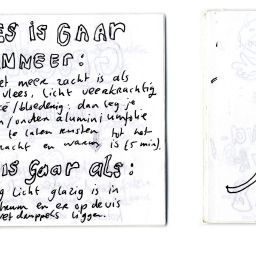 ES IS GAAR
NNEER:
et meer zacht is als
vlees, licht veerkrachtig
é/bloedening: dan leg je
n/onder aluminiumfolie
te laten rusten tot het
racht en warm is (5 min).
is Gaar als:
g licht glazig is in
en er op de vis
vet druppels liggen.